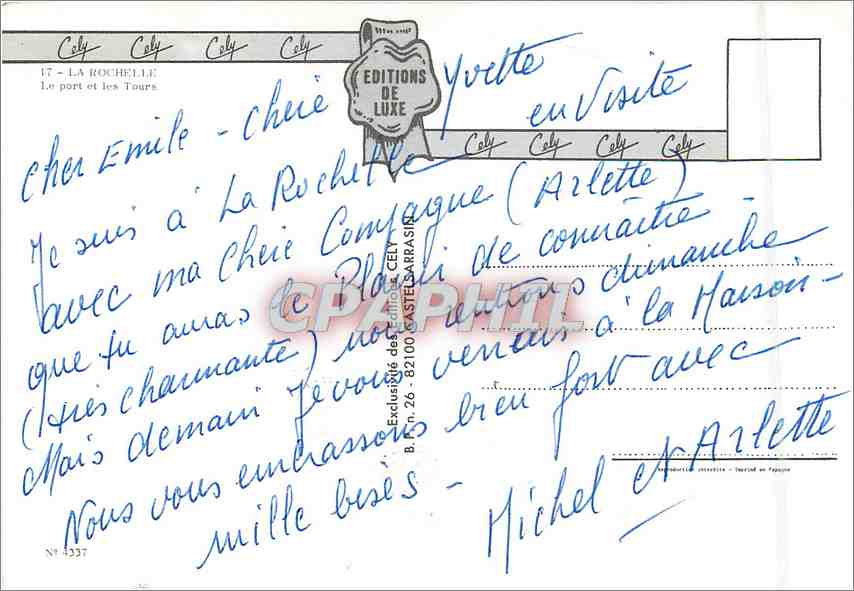 Cely Cely Cely Cely
17 - LA ROCHELLE
Le port et les Tours
EDITIONS
DE
LUXE
Cely Cely Cely Cely
Cher Emile - Chérie Yvette
Je suis à La Rochelle en Visite
avec ma Chérie Compagne (Arlette)
que tu auras le Plaisir de connaître -
(très charmante) nous rentrons dimanche
Mais demain Je vous verrais à la Maison -
Nous vous embrassons bien fort avec
mille bises -
Michel et Arlette
Exclusivité des Editions CELY
B. P. n. 26 - 82100 CASTELSARRASIN
CPAPHIL
Reproduction interdite - Imprimé en Espagne
Nº 4337